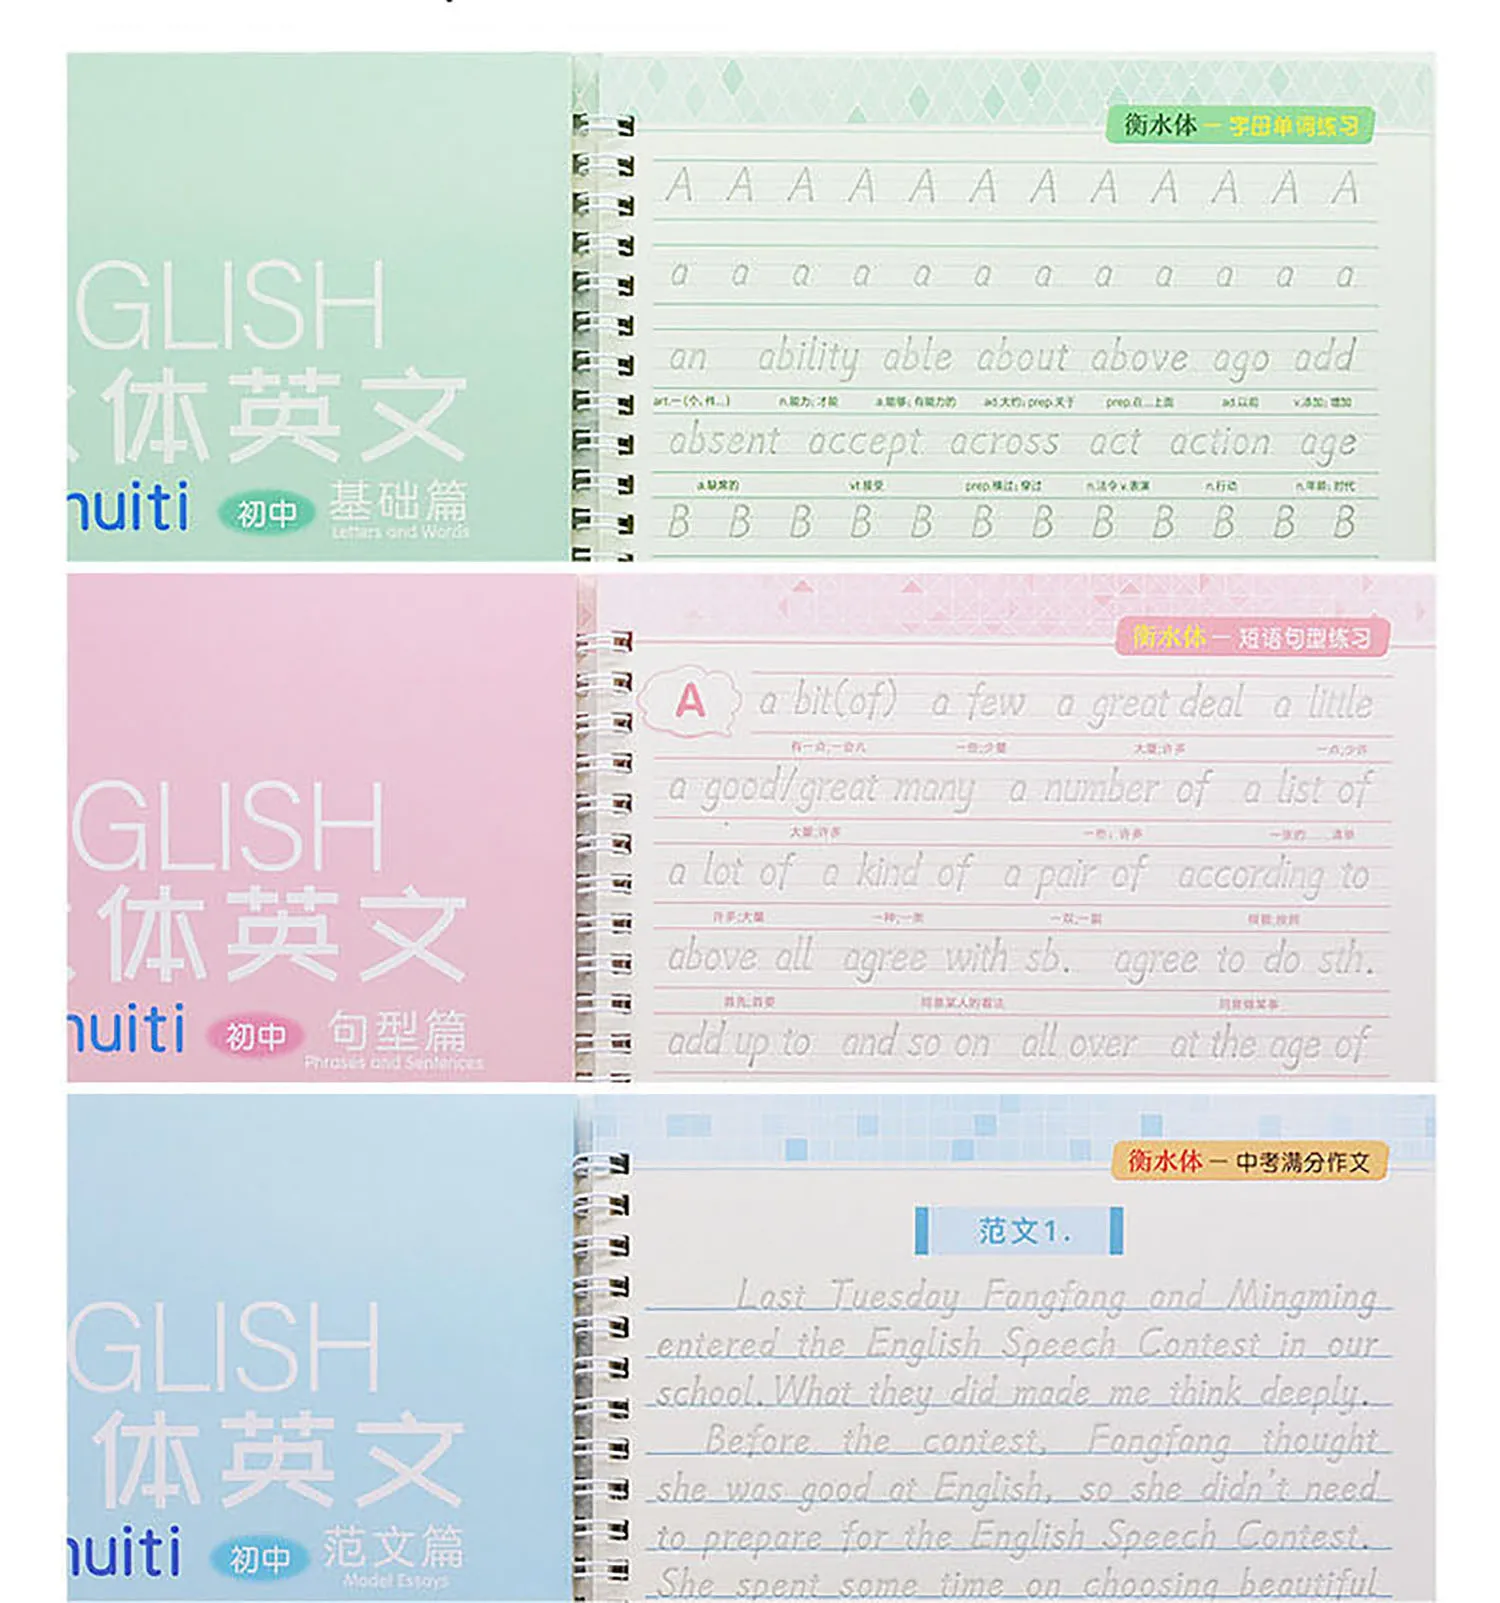 GLISH
体英文
huiti 初中 基础篇
Letters and Words
衡水体 — 字母单词练习
A A A A A A A A A A A A
a a a a a a a a a a a a
an ability able about above ago add
art.一(个、件...) n.能力; 才能 a.能够; 有能力的 ad.大约; prep.关于 prep.在...上面 ad.以前 v.添加; 增加
absent accept across act action age
a.缺席的 vt.接受 prep.横过; 穿过 n.法令 v.表演 n.行动 n.年龄; 时代
B B B B B B B B B B B B
GLISH
体英文
huiti 初中 句型篇
Phrases and Sentences
衡水体 — 短语句型练习
A a bit(of) a few a great deal a little
有一点;一会儿 一些;少量 大量;许多 一点;少许
a good/great many a number of a list of
大量;许多 一些; 许多 一张的......清单
a lot of a kind of a pair of according to
许多;大量 一种;一类 一双;一副 根据;按照
above all agree with sb. agree to do sth.
首先;首要 同意某人的看法 同意做某事
add up to and so on all over at the age of
GLISH
体英文
huiti 初中 范文篇
Model Essays
衡水体 — 中考满分作文
范文1.
Last Tuesday Fangfang and Mingming
entered the English Speech Contest in our
school. What they did made me think deeply.
Before the contest, Fangfang thought
she was good at English, so she didn't need
to prepare for the English Speech Contest.
She spent some time on choosing beautiful